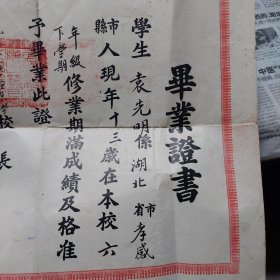 畢業證書
學生袁先明係湖北省市孝感
縣市人現年十三歲在本校六
年級下學期修業期滿成績及格准
予畢業此證
校長